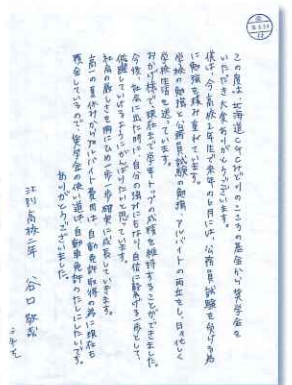 この度は、北海道CGCみどりとこころの基金から奨学金を
いただき大変ありがとうございます。
僕は、今高校2年生で来年の6月には、公務員試験を受ける為
に勉強を積み重ねています。
学校の勉強と公務員試験の勉強、アルバイトの両立をし、日々忙しく
学校生活を送っています。
おかげ様で、現在まで学年トップの成績を維持することができました。
今後、社会に出た時に自分の強みにもなり、自信に繋げる一歩として、
保持していけるようにがんばりたいと思っています。
社会の厳しさを胸にひめ一歩一歩確実に成長していきます。
高一の夏休みからアルバイト費用は、自動車免許取得の為に現在も
預金しているので、奨学金の使い道は自動車免許のたしにしたいです。
ありがとうございました。
江別高校二年 谷口